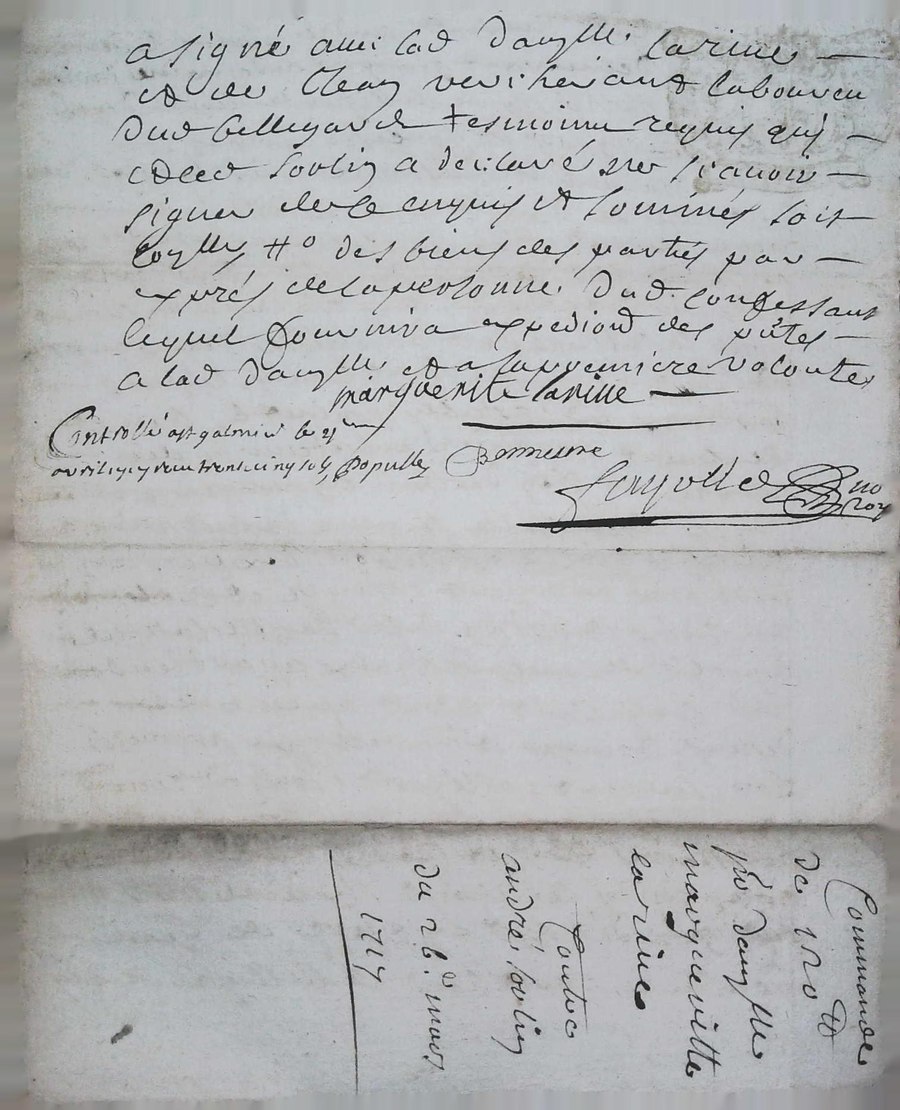 a signé avec lad damlle larive
et de Jean vericher aud laboureu
dud bellegarde tesmoins requis qui
et led Soulis a declaré ne scavoir
signer de ce enquis et sommés soit
des biens des parties par
exprés de la personne dud confessant
lequel fournira expediond des pntes
a lad damlle et a sa premiere volonte
marguerite larive
Controllé a st galmier le 2j
avril 1717 reçu trente cinq sols
Bonnune
no
roy
Commande
de 120 tt
po damlle
margueritte
larive
Contre
andré Soulis
du 26e mars
1717